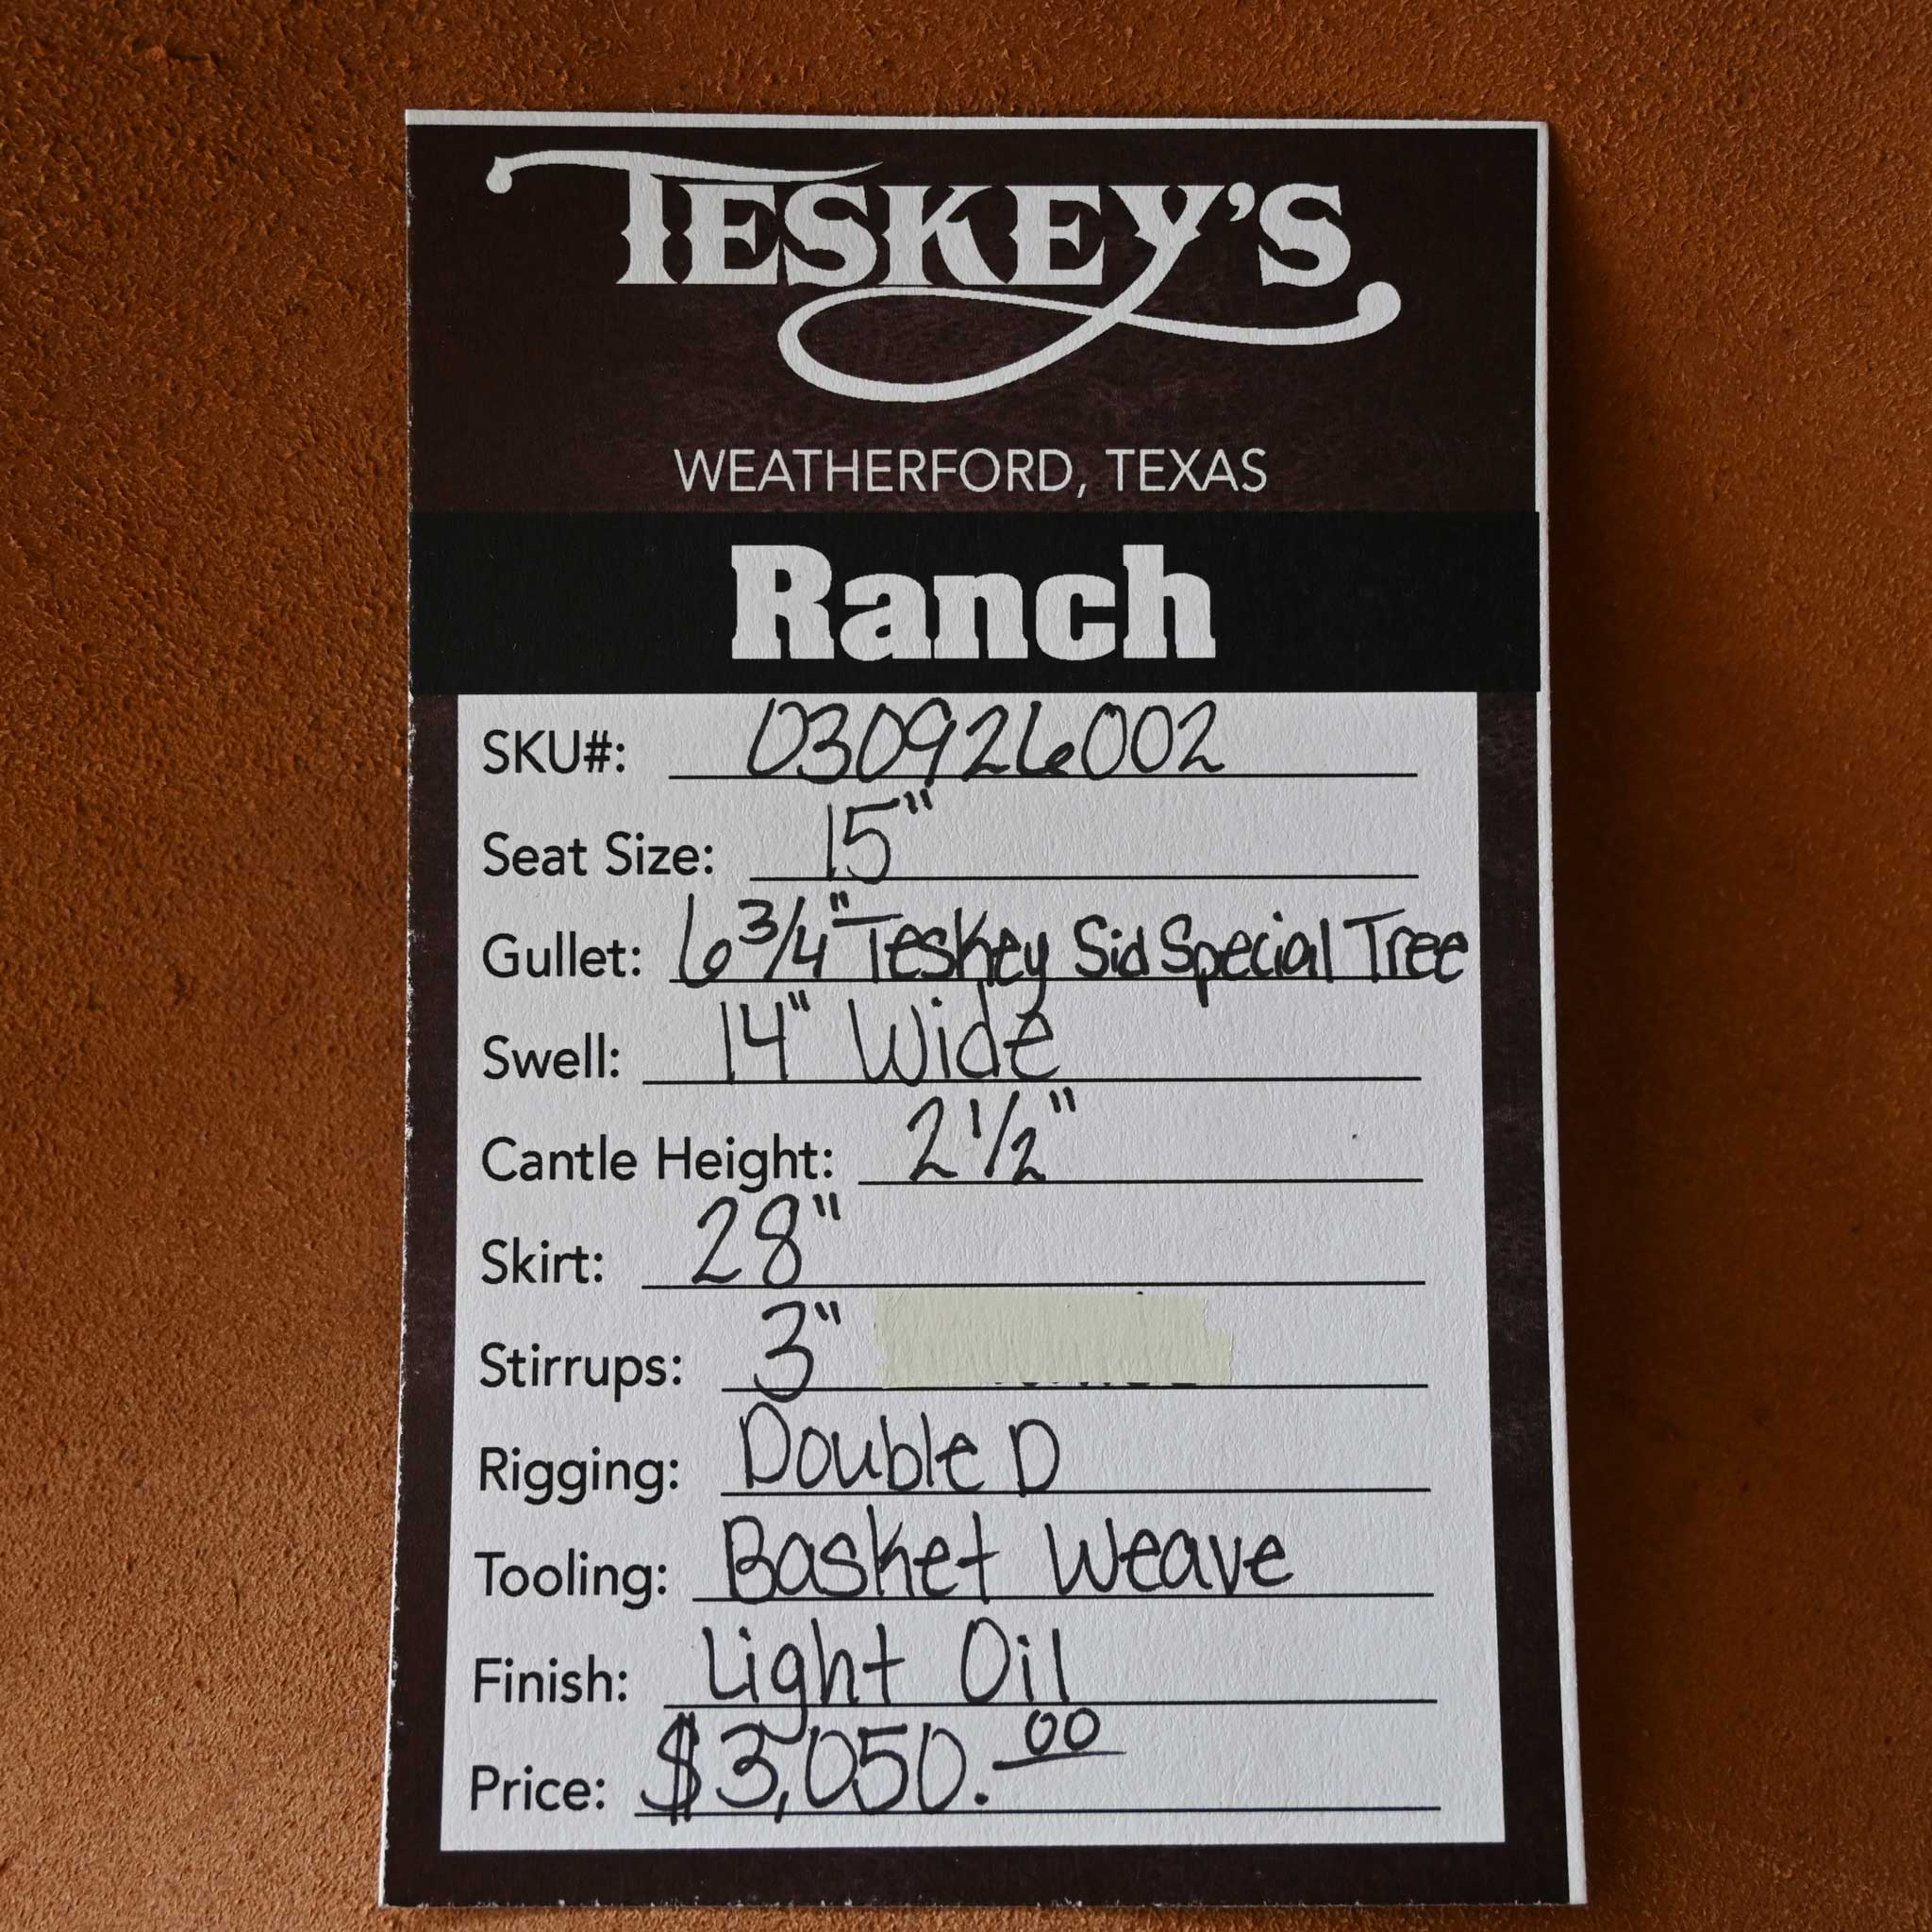 TESKEY'S
WEATHERFORD, TEXAS
Ranch
SKU#: 030926002
Seat Size: 15"
Gullet: 6 3/4" Teskey Sid Special Tree
Swell: 14" Wide
Cantle Height: 2 1/2"
Skirt: 28"
Stirrups: 3"
Rigging: Double D
Tooling: Basket Weave
Finish: Light Oil
Price: $3,050.00